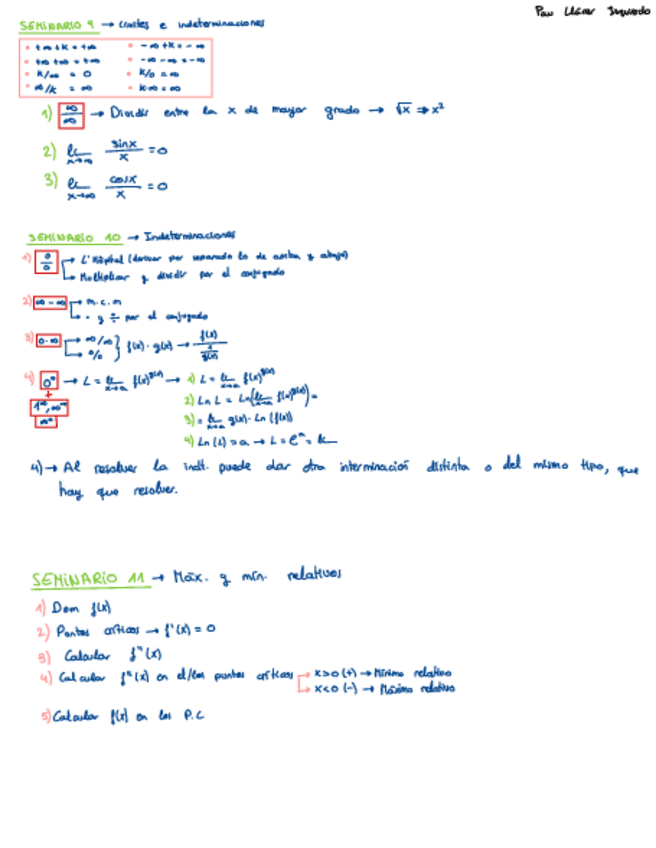 Pau Llácer Izquierdo
SEMINARIO 9 → Límites e indeterminaciones
• +∞+k = +∞ • -∞+k = -∞
• +∞+∞ = +∞ • -∞-∞ = -∞
• k/∞ = 0 • k/0 = ∞
• ∞/k = ∞ • k·∞ = ∞
1) ∞/∞ → Dividir entre la x de mayor grado → √x ⇒ x²
2) lim x→∞ sinx/x = 0
3) lim x→∞ cosx/x = 0
SEMINARIO 10 → Indeterminaciones
1) 0/0 → L'Hôpital (derivar por separado lo de arriba y abajo)
→ Multiplicar y dividir por el conjugado
2) ∞-∞ → m.c.m
→ · y ÷ por el conjugado
3) 0·∞ → ∞/∞
→ 0/0 } f(x)·g(x) → f(x) / 1/g(x)
4) 0⁰ → L = lim x→a f(x)^g(x) → 1) L = lim x→a f(x)^g(x)
+
1^∞, ∞⁰
2) Ln L = Ln(lim x→a f(x)^g(x)) =
3) = lim x→a g(x)·Ln (f(x))
4) Ln (L) = a → L = eᵃ = k
4) → Al resolver la indt. puede dar otra interminación distinta o del mismo tipo, que
hay que resolver.
SEMINARIO 11 → Máx. y mín. relativos
1) Dom f(x)
2) Puntos críticos → f'(x) = 0
3) Calcular f''(x)
4) Calcular f''(x) en el/los puntos críticos → x>0 (+) → Mínimo relativo
→ x<0 (-) → Máximo relativo
5) Calcular f(x) en los P.C